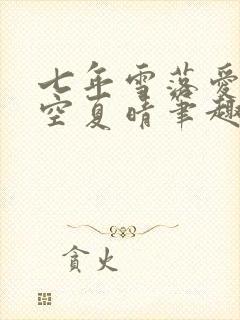 七年雪落爱
空夏晴笔趣
贪火